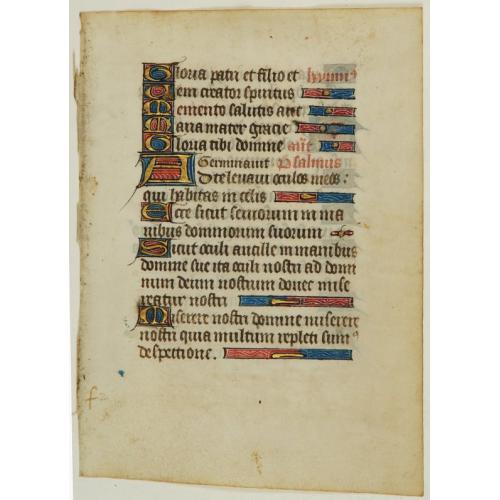 Gloria patri et filio et hymn⁹
Veni creator spiritus
Memento salutis aut
Maria mater gracie
Gloria tibi domine añt
Germinauit Psalmus
Ad te leuaui oculos meos:
qui habitas in celis
Ecce sicut seruorum in ma
nibus dominorum suorum
Sicut oculi ancille in manibus
domine sue ita oculi nostri ad domi
num deum nostrum donec mise
reatur nostri
Miserere nostri domine miserere
nostri quia multum repleti sum⁹
despectione.